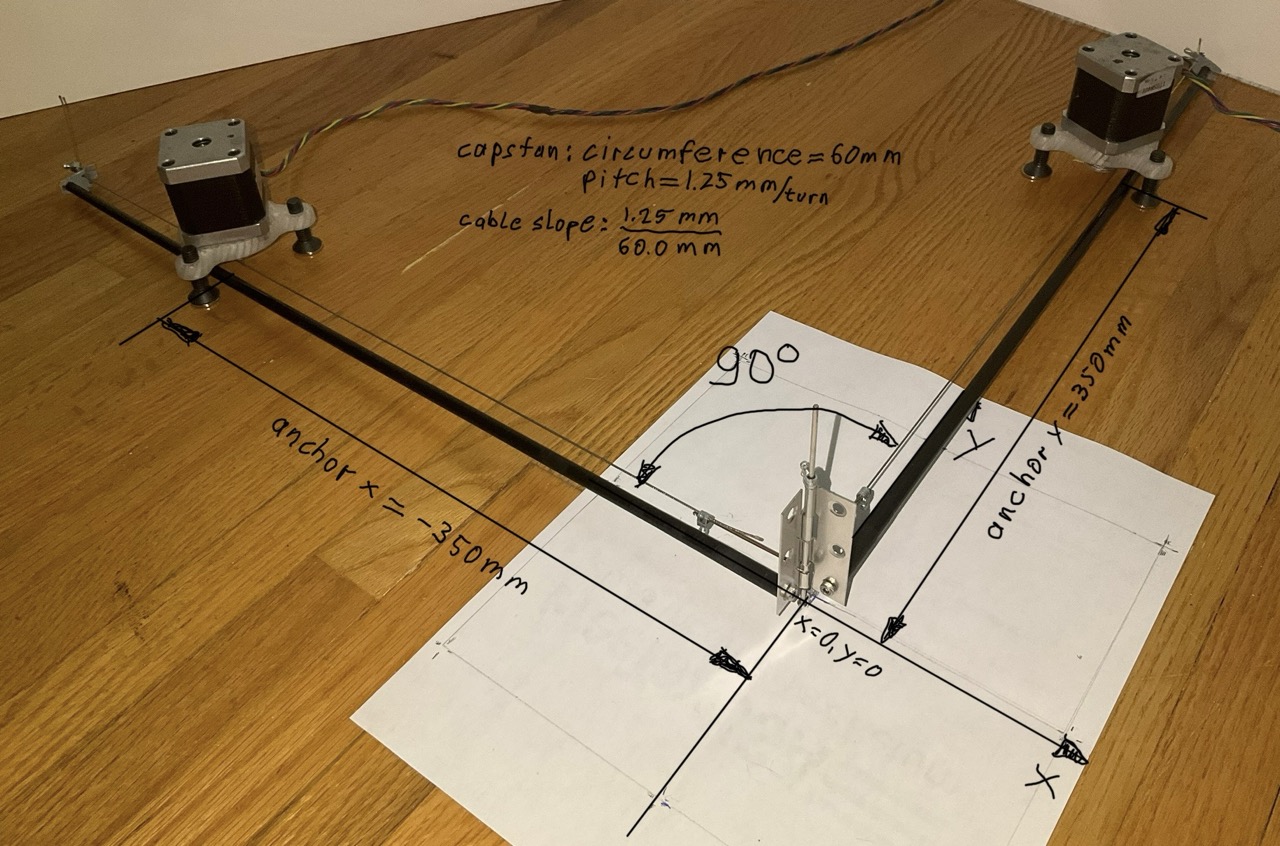 capstan: circumference=60mm
pitch=1.25mm/turn
cable slope: 1.25 mm
60.0 mm
90°
Y
anchor x = -350mm
anchor x = 350mm
x=0, y=0
X